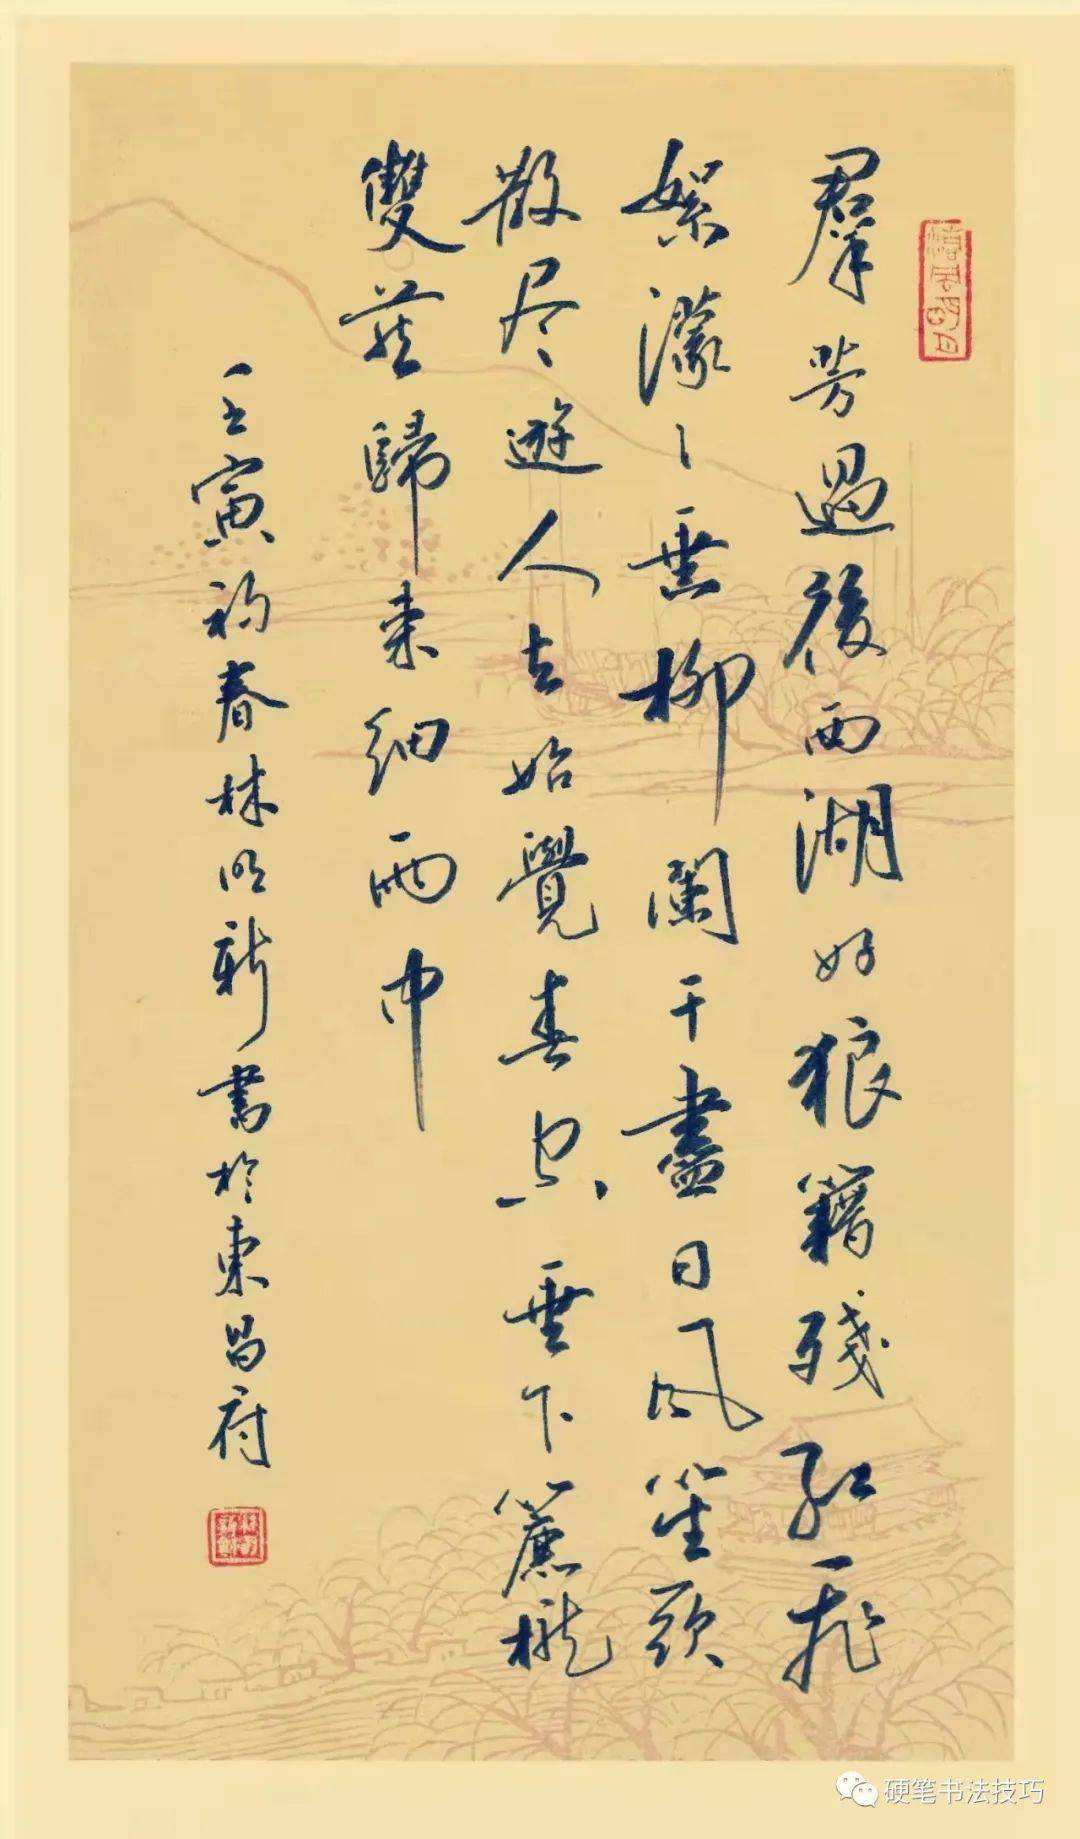 羣芳過後西湖好狼籍残紅飛
絮濛〻垂柳闌干盡日風笙歌
散尽遊人去始覺春空垂下簾櫳
雙燕歸来細雨中
壬寅初春林明新書於東昌府
硬笔书法技巧